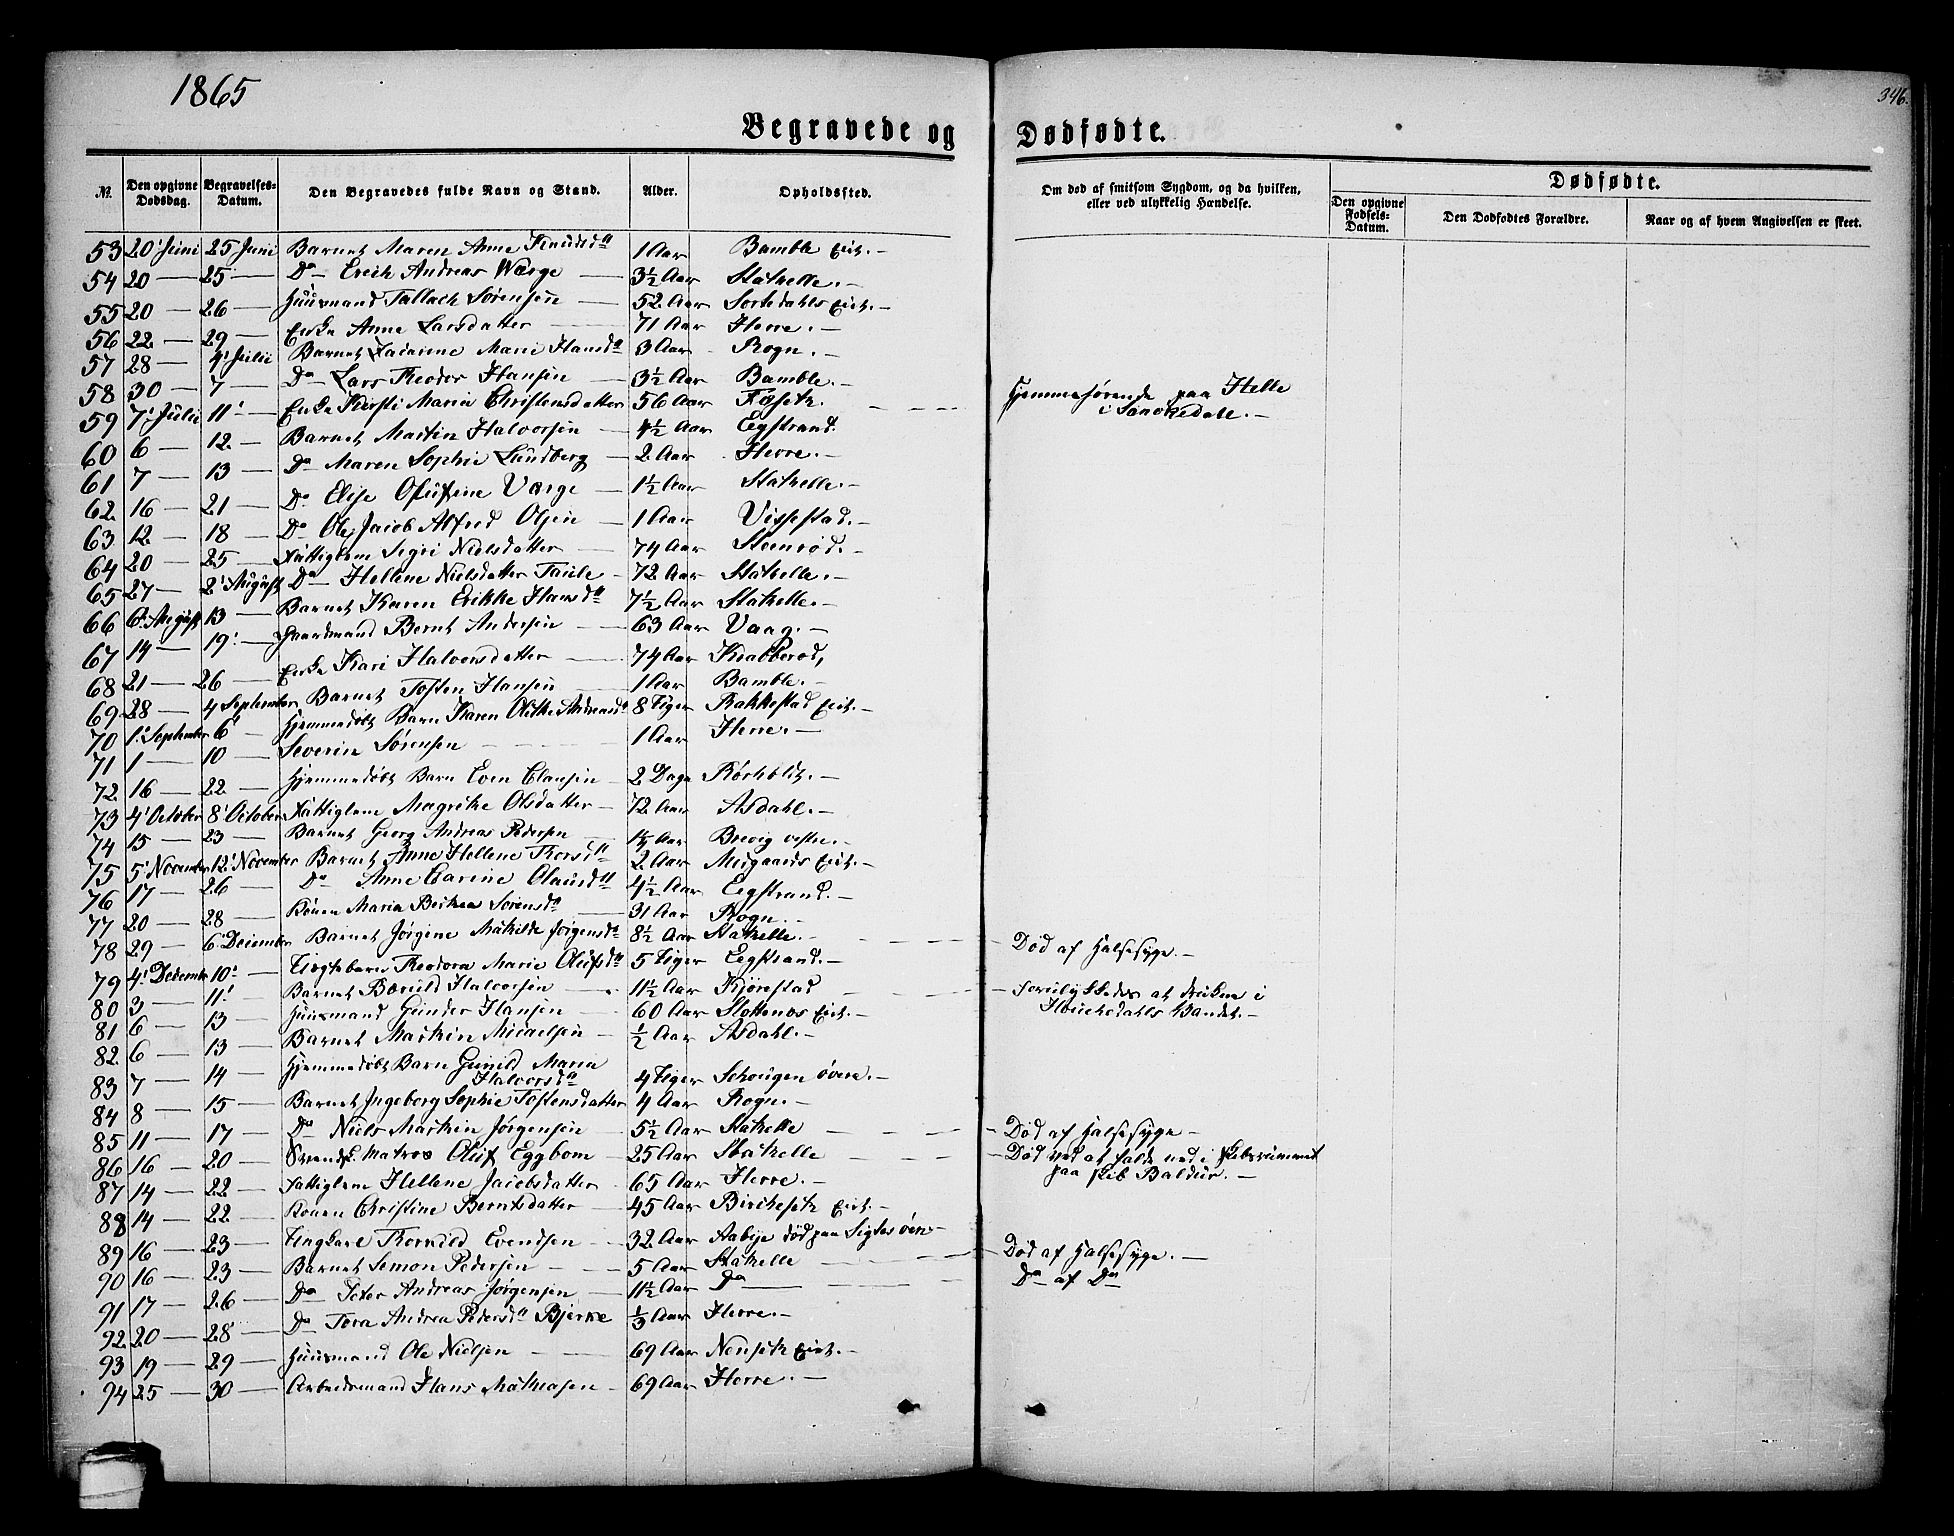 1865
346.
Begravede og Dødfødte.
No. Den opgivne Dødsdag. Begravelses-Datum. Den Begravedes fulde Navn og Stand. Alder. Opholdssted. Om død af smitsom Sygdom, og da hvilken, eller ved ulykkelig Hændelse. Dødfødte. Den opgivne Fødsels-Datum. Den Dødfødtes Forældre. Naar og af hvem Angivelsen er skeet.
53 20' Juni 25 Juni Barnet Maren Anne Knudsd" 1 Aar Bamble Eiet.-
54 20 — 25 — D° Erich Andreas Værge 3½ Aar Stathelle.-
55 20 — 26 — Huusmand Tallach Sørensen 52 Aar Sortedahls Eiet.-
56 22 — 29 — Enke Anne Larsdatter 71 Aar Herre.-
57 28 — 4' Julii Barnet Marie Hansd" 3 Aar Rogn.-
58 30 — 7 — D° Lars Theodor Hansen 3½ Aar Bamble.-
59 7' Julii 11' — Enke Kirsti Maria Christensdatter 56 Aar Hjemmehørende paa Helle
i Sannikedal.-
60 6 — 12 — Barnet Martin Halvorsen 4½ Aar Eegstrand.
61 7 — 13 — D° Maren Sophie Lundberg 2 Aar Herre.-
62 16 — 21 — D° Elise Olufine Værge 1½ Aar Stathelle.-
63 12 — 18 — D° Ole Jacob Alfred Olsen 1 Aar Vissestad.-
64 20 — 25 — Fattiglem Segri Nielsdatter 74 Aar Steenrød.-
65 27 — 2' August D° Hellene Nielsdatter Taule 72 Aar Stathelle.-
66 6' August 13 — Barnet Karen Erikke Hansd" 7½ Aar Stathelle.-
67 14 — 19' — Gaardmand Bernt Andersen 63 Aar Vaag.-
68 21 — 26 — Enke Kari Halvorsdatter 74 Aar Krabberød,
69 28 — 4 September Barnet Tosten Hansen 1 Aar Bamble.-
70 1' September 6' Hjemmedøbt Barn Karen Andreasd" 8 Uger Rakkestad Eiet.-
71 1 — 10 — Severin Sørensen 1 Aar Herre.-
72 16 — 22 — Hjemmedøbt Barn Even Clausen 2 Dage Rørholdt.-
73 4' October 8' October Fattiglem Magrethe Olsdatter 72 Aar Asdahl.-
74 15 — 23 — Barnet Georg Andreas Pedersen Aar Brevig vestre.-
75 5' November 12' November Barnet Anne Hellene Thorsd" 2 Aar Eiet.-
76 17 — 26 — D° Anne Carine Olausd" 4½ Aar Eegstrand.-
77 20 — 28 — Konen Maria Sørensd" 31 Aar Rogn.-
78 29 — 6' December Barnet Jørgine Mathilde Jørgensd" 8½ Aar Stathelle.- Død af Halsesyge.-
79 4' Decembr 10' — Uægtebarn Theodora Marie Olufsd" 5 Uger Eegstrand.-
80 3 — 11' — Barnet Halvorsen 11½ Aar Kjørestad Forulykkedes at drukne i
Vandet.-
81 6 — 13 — Huusmand Gunder Hansen 60 Aar Eiet.-
82 6 — 13 — Barnet Martin Micaelsen ½ Aar Asdahl.-
83 7 — 14 — Hjemmedøbt Barn Gunild Maria
Halvorsd" 4 Uger Schougen øvre.-
84 8 — 15 — Barnet Ingeborg Sophie Tostensdatter 4 Aar Rogn.-
85 11 — 17 — D° Niels Martin Jørgensen 5½ Aar Stathelle Død af Halsesyge-
86 16 — 20 — Matros Oluf Eggbom 25 Aar Stathelle Død ved at falde ned i Skibsrummet
paa Skib Baldur.-
87 14 — 22 — Fattiglem Hellene Jacobsdatter 65 Aar Herre.-
88 14 — 22 — Konen Christine Berntsdatter 45 Aar Eiet.-
89 16 — 23 — Ungkarl Thorvild Evendsen 32 Aar Aabye død paa Sigtesøen
90 16 — 23 — Barnet Semon Pedersen 5 Aar Stathelle Død af Halsesyge.-
91 17 — 26 — D° Peter Andreas Jørgensen 11½ Aar D° — D° af D°
92 20 — 28 — D° Tora Andrea Pedersd" Bjerke ⅓ Aar Herre.-
93 19 — 29 — Huusmand Ole Nielsen 69 Aar Nenseth Eiet.-
94 25 — 30 — Arbeidsmand Hans Mathiasen 69 Aar Herre.-